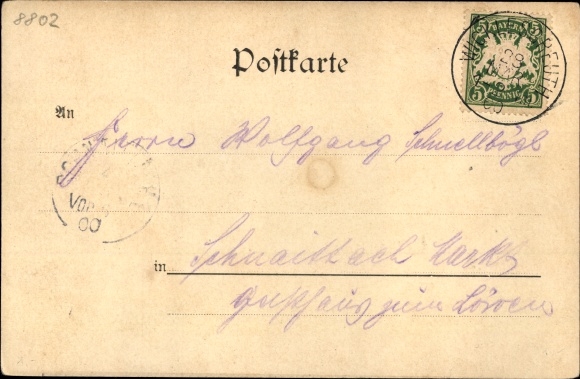 8802
BAYERN
5 PFENNIG 5
Postkarte
An
Herrn Wolfgang Schnellbögl
in Schnaittach Markt
Gasthaus zum Löwen